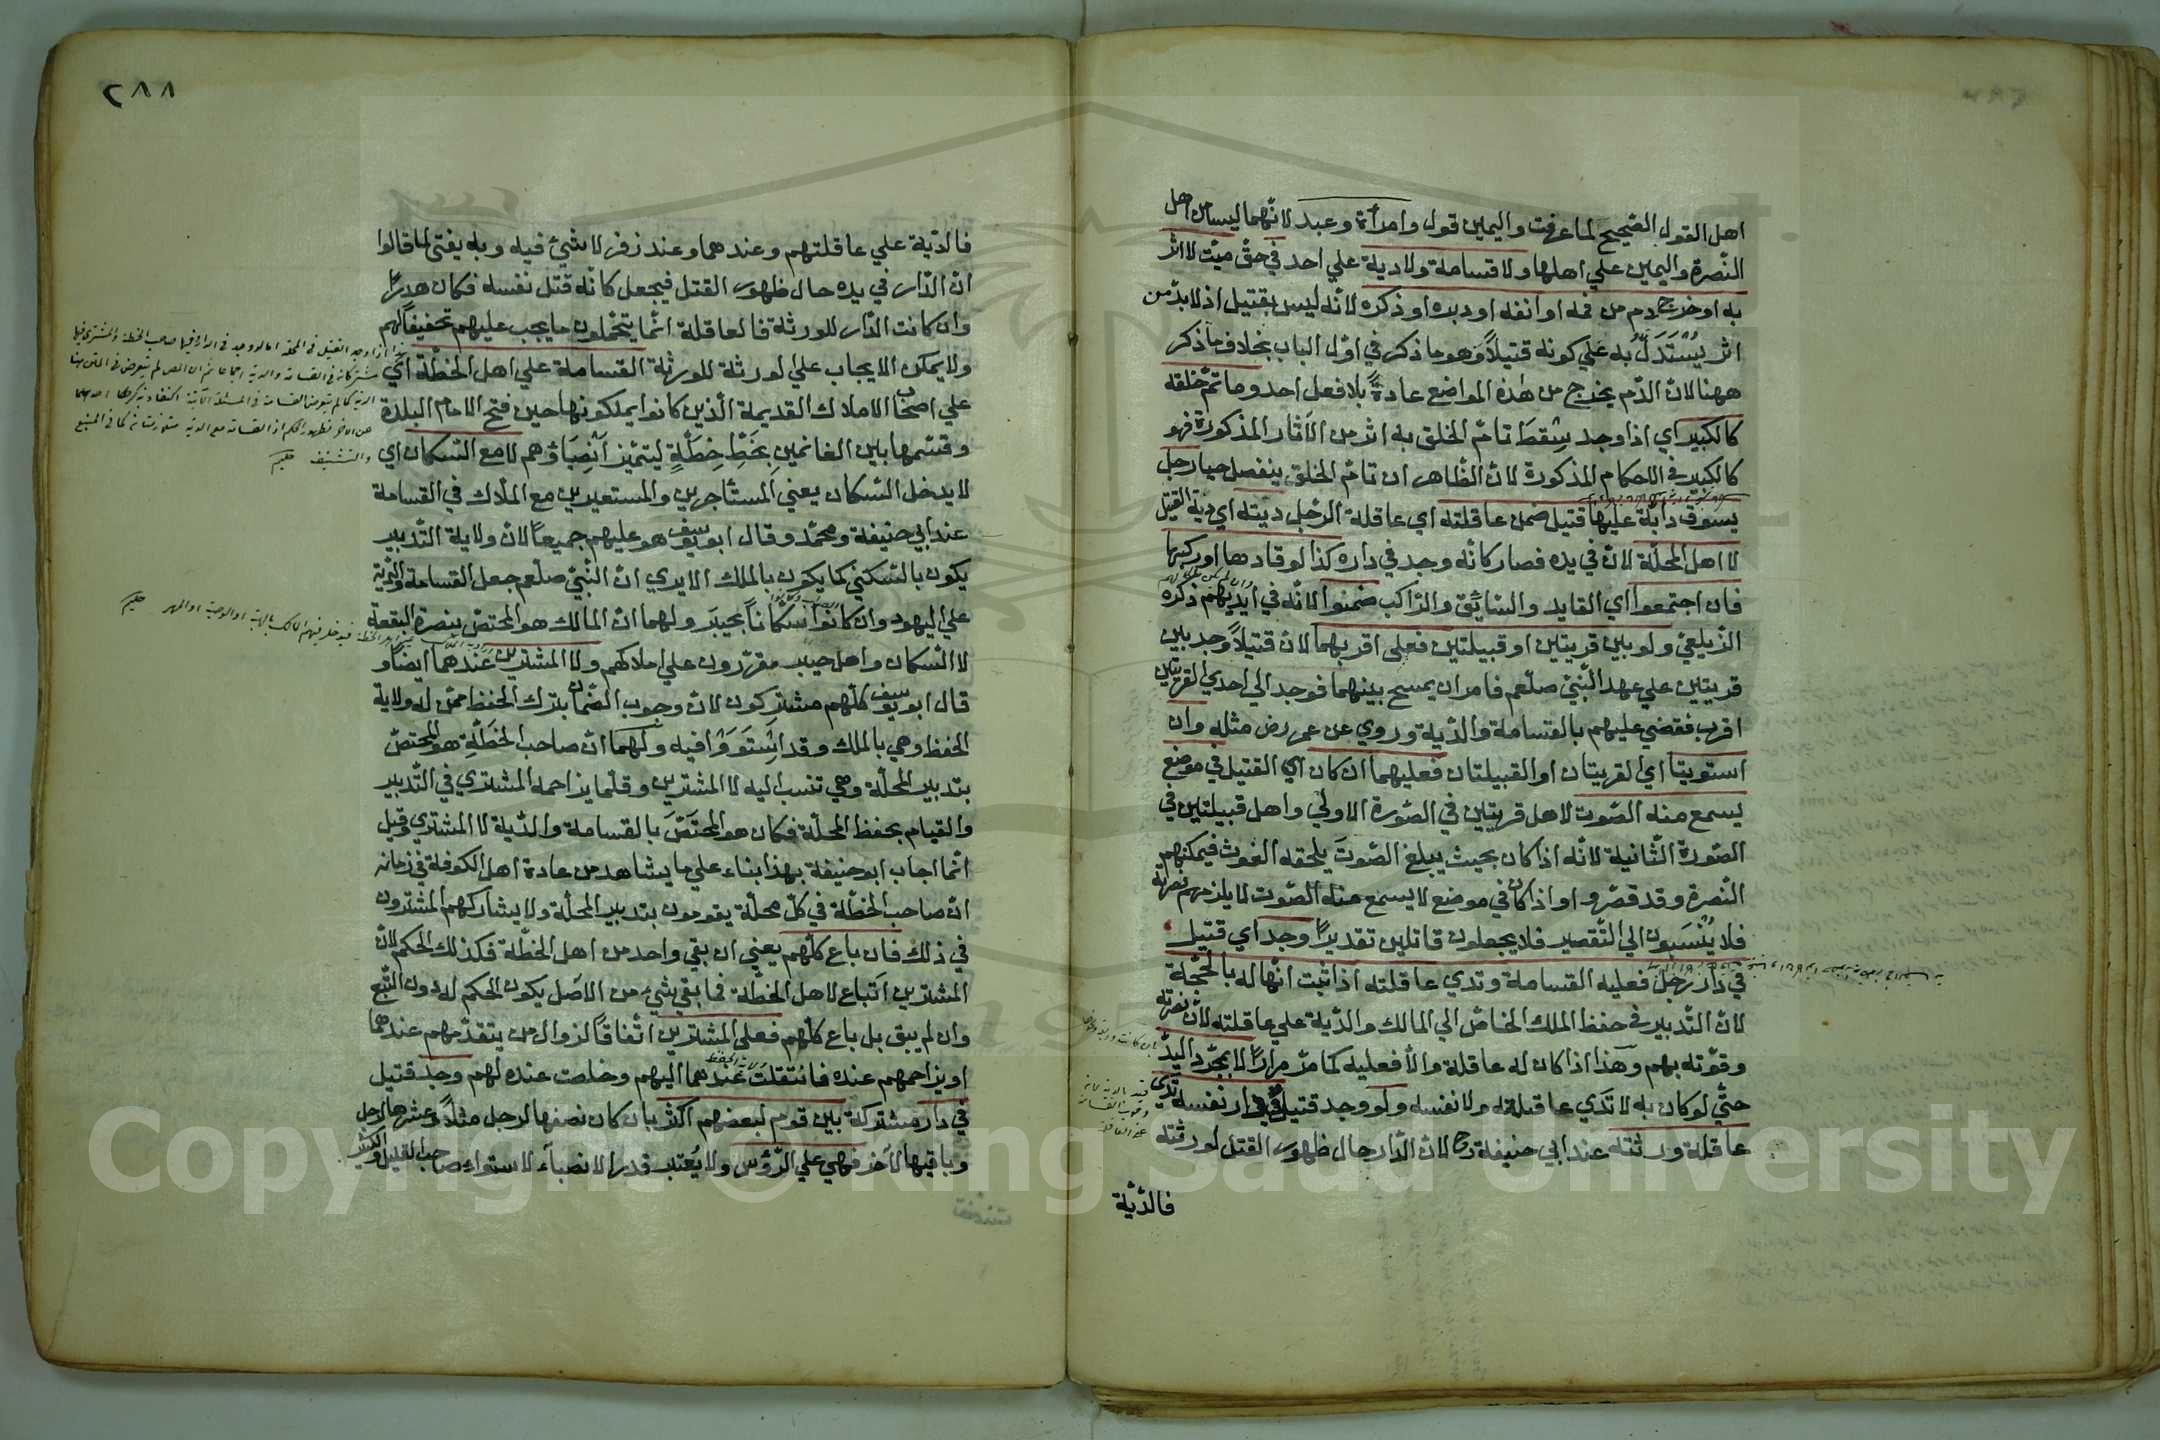 اهل القول الصّحيح لما عرفت واليمين قول وامرأة وعبد لانّهما ليسا من اهل
النّصرة واليمين علي اهلها ولا قسامة ولا دية علي احد في حقّ ميّت لا اثر
به او خرج دم من فمه او انفه او دبره او ذكره لانّه ليس بقتيل اذ لا بدّ من
اثر يُسْتَدَلُّ به علي كونه قتيلاً وهو ما ذكر في اوّل الباب بخلاف ما ذكر
ههنا لانّ الدّم يخرج من هذه المواضع عادةً بلا فعل احد وما تمّ خلقه
كالكبير اي اذا وجد سِقط تامّ الخلق به اثر من الآثار المذكورة فهو
كالكبير في الاحكام المذكورة لانّ الظّاهر ان تامّ الخلق ينفصل حيا رجل
يسوق دابّة عليها قتيل ضمن عاقلته اي عاقلة الرّجل ديته اي دية القتيل
لا اهل المحلّة لانّ في يده فصار كانّه وجد في داره كذا لو قادها او ركبها
فان اجتمعوا اي القايد والسّايق والرّاكب ضمنوا لانّه في ايديهم ذكره
الزّيلعيّ ولو بين قريتين او قبيلتين فعلي اقربهما لانّ قتيلاً وجد بين
قريتين علي عهد النّبيّ صلّعم فامر ان يمسح بينهما فوجد الي احدي القريتين
اقرب فقضي عليهم بالقسامة والدّية وروي عن عمر رض مثله وان
استويتا اي القريتان او القبيلتان فعليهما ان كان اي القتيل في موضع
يسمع منه الصّوت لاهل قريتين في الصّورة الاولي واهل قبيلتين في
الصّورة الثّانية لانّه اذا كان بحيث يبلغ الصّوتَ يلحقه الغوث فيمكنهم
النّصرة وقد قصّروا واذا كان في موضع لا يسمع منه الصّوت لا يلزمهم نصرته
فلا يُنْسَبون الي التّقصير فلا يجعلون قاتلين تقديرًا وجد اي قتيل
في دار رجل فعليه القسامة وتدي عاقلته اذا ثبت انّها له بالحجّة
لانّ التّدبير في حفظ الملك الخاصّ الي المالك والدّية علي عاقلته لانّ نصرته
وقوّته بهم وهذا اذا كان له عاقلة والاّ فعليه كما مرّ مرارًا لا بمجرّد اليد
حتّي لو كان به لا تدي عاقلته ولا نفسه ولو وجد قتيل في دار نفسه تدي
عاقلة ورثته عند ابي حنيفة رح لانّ الدّار حال ظهور القتل لورثته
فالدّية
٢٨٨
فالدّية علي عاقلتهم وعندهما وعند زفر لا شئ فيه وبه يفتي لما قالوا
انّ الدّار في يده حال ظهور القتل فيجعل كانّه قتل نفسه فكان هدرًا
وان كانت الدّار للورثة فالعاقلة انّما يتحمّلون ما يجب عليهم تخفيفًا لهم
ولا يمكن الايجاب علي الورثة للورثة القسامة علي اهل الخطّة اي
علي اصحاب الاملاك القديمة الّذين كانوا يملكونها حين فتح الامام البلدة
وقسّمها بين الغانمين بِخَطِّ خِطَّةٍ ليتميّز اَنْصِبَاؤهم لا مع السّكان اي
لا يدخل السّكان يعني المستأجرين والمستعيرين مع الملاّك في القسامة
عند ابي حنيفة ومحمّد وقال ابو يوسف هو عليهم جميعًا لانّ ولاية التّدبير
يكون بالسّكني كما يكون بالملك الا يري انّ النّبيّ صلّعم جعل القسامة والدّية
علي اليهود وان كانوا سكّانًا بخيبر ولهما انّ المالك هو المختصّ بنصرة البقعة
لا السّكان واهل خيبر مقرّرون علي املاكهم ولا المشترين عندهما ايضًا و
قال ابو يوسف كلّهم مشتركون لانّ وجوب الضّمان بترك الحفظ ممّن له ولاية
الحفظ وهي بالملك وقد اِسْتَوَوْا فيه ولهما انّ صاحب الخطّة هو المختصّ
بتدبير المحلّة وهي تنسب اليه لا المشترين وقلّما يزاحمه المشتري في التّدبير
والقيام بحفظ المحلّة فكان هو المختصّ بالقسامة والدّية لا المشتري وقيل
انّما اجاب ابو حنيفة بهذا بناء علي ما يشاهد من عادة اهل الكوفة في زمانه
انّ صاحب الخطّة في كلّ محلّة يقومون بتدبير المحلّة ولا يشاركهم المشترون
في ذلك فان باع كلّهم يعني ان بقي واحد من اهل الخطّة فكذلك الحكم لانّ
المشترين اَتباع لاهل الخطّة فما بقي شئ من الاصل يكون الحكم له دون التّبع
وان لم يبق بل باع كلّهم فعلي المشترين اتّفاقًا لزوال من يتقدّمهم عندهما
او يزاحمهم عنده فانتقلت عندهما اليهم وخلصت عنده لهم وجد قتيل
في دار مشتركة بين قوم لبعضهم اكثر بان كان نصفها لرجل مثلاً وعشرها لرجل
وباقيها لآخر فهي علي الرّؤس ولا يُعتبر قدر الانصباء لاستواء صاحب القليل والكثير
Copyright © King Saud University